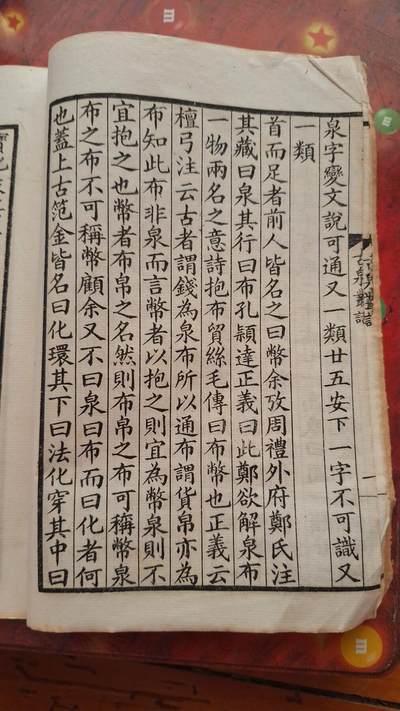 泉字變文說可通又一類廿五安下一字不可識又
一類
首而足者前人皆名之曰幣余攷周禮外府鄭氏注
其藏曰泉其行曰布孔穎達正義曰此鄭欲解泉布
一物兩名之意詩抱布貿絲毛傳曰布幣也正義云
檀弓注云古者謂錢為泉布所以通布謂貨帛亦為
布知此布非泉而言幣者以抱之則宜為幣泉則不
宜抱之也幣者布帛之名然則布帛之布可稱幣泉
布之布不可稱幣顧余又不曰泉曰布而曰化者何
也蓋上古范金皆名曰化環其下曰法化穿其中曰